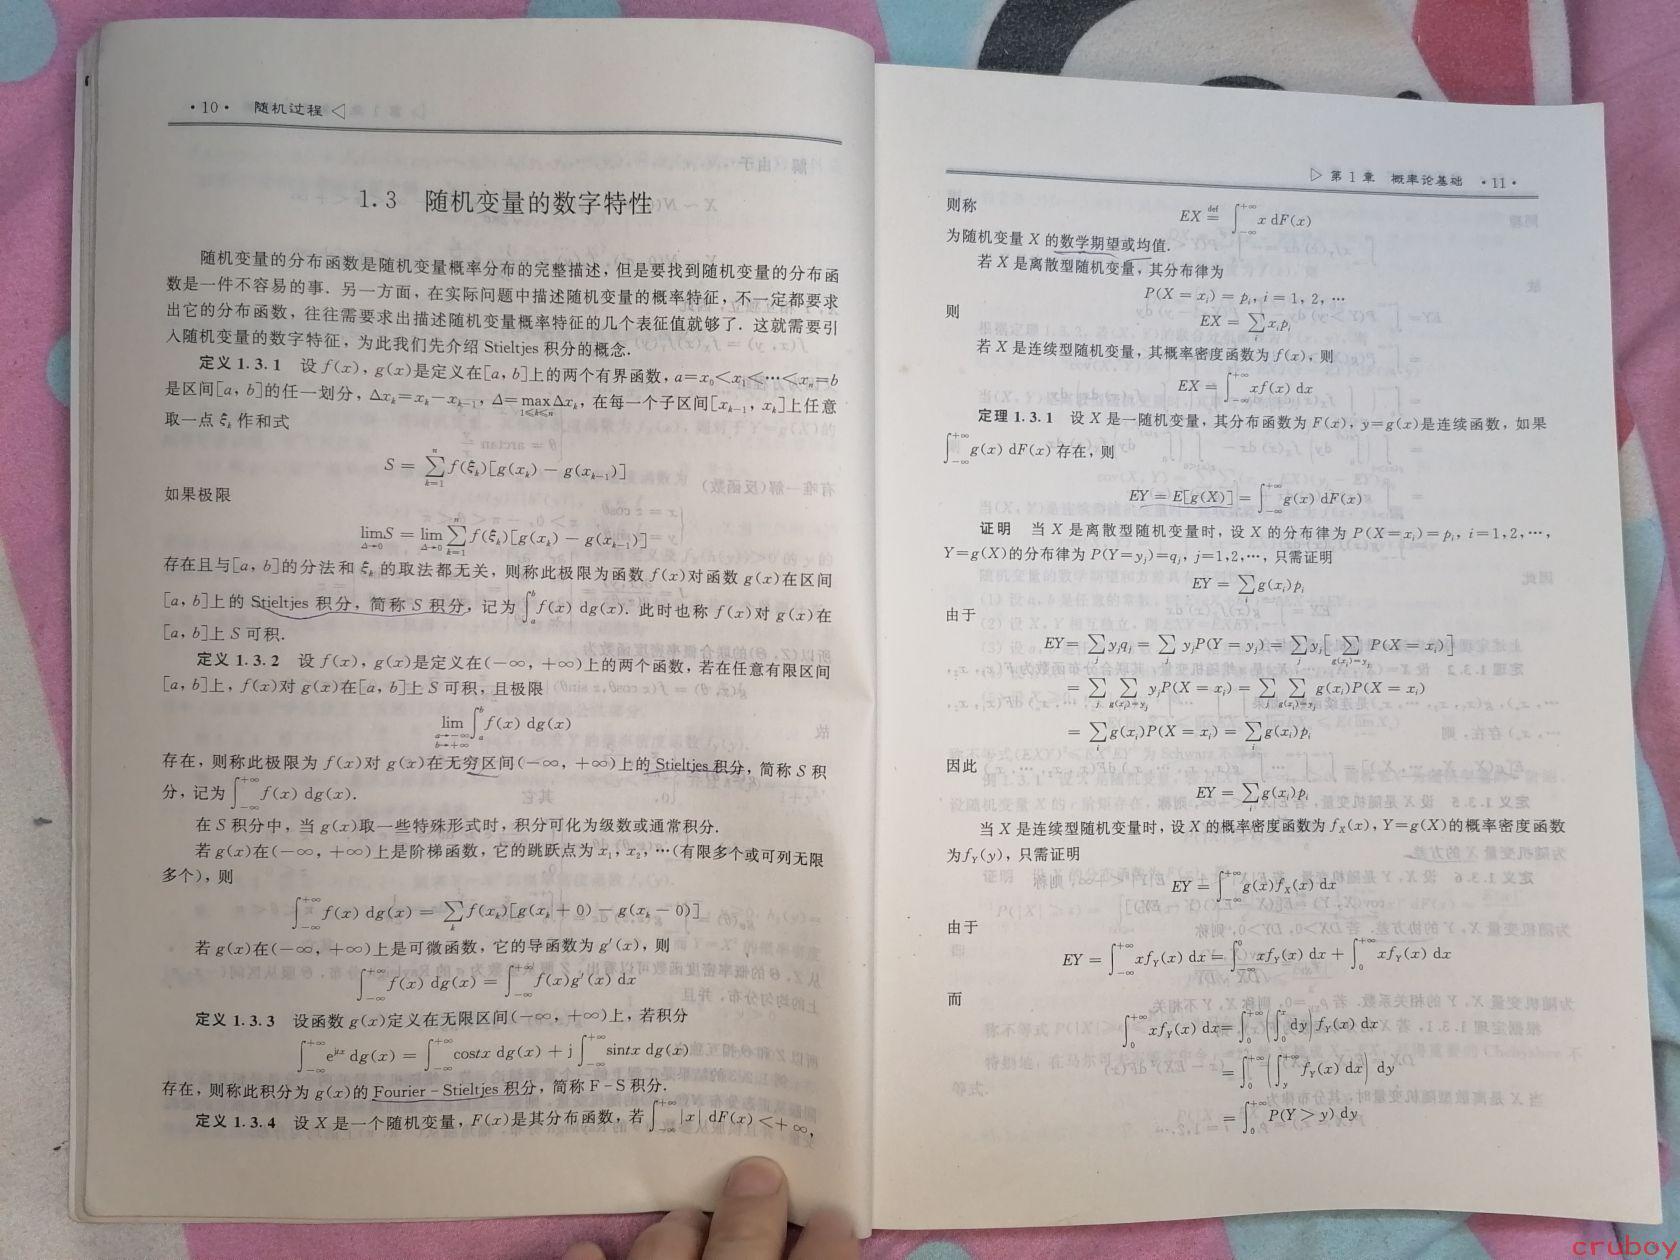 ·10· 随机过程 ◁
1.3 随机变量的数字特性
随机变量的分布函数是随机变量概率分布的完整描述，但是要找到随机变量的分布函
数是一件不容易的事．另一方面，在实际问题中描述随机变量的概率特征，不一定都要求
出它的分布函数，往往需要求出描述随机变量概率特征的几个表征值就够了．这就需要引
入随机变量的数字特征，为此我们先介绍 Stieltjes 积分的概念．
定义 1.3.1 设 f(x)，g(x)是定义在[a，b]上的两个有界函数，a=x₀<x₁≤…≤xₙ=b
是区间[a，b]的任一划分，Δxₖ=xₖ−xₖ₋₁，Δ=max Δxₖ，在每一个子区间[xₖ₋₁，xₖ]上任意
1≤k≤n
取一点 ξₖ 作和式
S = ∑ₖ₌₁ⁿ f(ξₖ)[g(xₖ) − g(xₖ₋₁)]
如果极限
lim_{Δ→0} S = lim_{Δ→0} ∑ₖ₌₁ⁿ f(ξₖ)[g(xₖ) − g(xₖ₋₁)]
存在且与[a，b]的分法和 ξₖ 的取法都无关，则称此极限为函数 f(x)对函数 g(x)在区间
[a，b]上的 Stieltjes 积分，简称 S 积分，记为 ∫ₐᵇ f(x) dg(x)．此时也称 f(x)对 g(x)在
[a，b]上 S 可积．
定义 1.3.2 设 f(x)，g(x)是定义在(−∞，+∞)上的两个函数，若在任意有限区间
[a，b]上，f(x)对 g(x)在[a，b]上 S 可积，且极限
lim_{a→−∞ b→+∞} ∫ₐᵇ f(x) dg(x)
存在，则称此极限为 f(x)对 g(x)在无穷区间(−∞，+∞)上的 Stieltjes 积分，简称 S 积
分，记为 ∫_{−∞}^{+∞} f(x) dg(x)．
在 S 积分中，当 g(x)取一些特殊形式时，积分可化为级数或通常积分．
若 g(x)在(−∞，+∞)上是阶梯函数，它的跳跃点为 x₁，x₂，…(有限多个或可列无限
多个)，则
∫_{−∞}^{+∞} f(x) dg(x) = ∑ₖ f(xₖ)[g(xₖ+0) − g(xₖ−0)]
若 g(x)在(−∞，+∞)上是可微函数，它的导函数为 g′(x)，则
∫_{−∞}^{+∞} f(x) dg(x) = ∫_{−∞}^{+∞} f(x)g′(x) dx
定义 1.3.3 设函数 g(x)定义在无限区间(−∞，+∞)上，若积分
∫_{−∞}^{+∞} e^{jtx} dg(x) = ∫_{−∞}^{+∞} costx dg(x) + j∫_{−∞}^{+∞} sintx dg(x)
存在，则称此积分为 g(x)的 Fourier-Stieltjes 积分，简称 F-S 积分．
定义 1.3.4 设 X 是一个随机变量，F(x)是其分布函数，若 ∫_{−∞}^{+∞} |x| dF(x) <+∞，
▷ 第 1 章 概率论基础 ·11·
则称
EX ≝ ∫_{−∞}^{+∞} x dF(x)
为随机变量 X 的数学期望或均值．
若 X 是离散型随机变量，其分布律为
P(X = xᵢ) = pᵢ，i = 1，2，…
则
EX = ∑ᵢ xᵢpᵢ
若 X 是连续型随机变量，其概率密度函数为 f(x)，则
EX = ∫_{−∞}^{+∞} xf(x) dx
定理 1.3.1 设 X 是一随机变量，其分布函数为 F(x)，y=g(x)是连续函数，如果
∫_{−∞}^{+∞} g(x) dF(x)存在，则
EY = E[g(X)] = ∫_{−∞}^{+∞} g(x) dF(x)
证明 当 X 是离散型随机变量时，设 X 的分布律为 P(X=xᵢ)=pᵢ，i=1,2,…，
Y=g(X)的分布律为 P(Y=yⱼ)=qⱼ，j=1,2,…，只需证明
EY = ∑ᵢ g(xᵢ)pᵢ
由于
EY = ∑ⱼ yⱼqⱼ = ∑ⱼ yⱼP(Y = yⱼ) = ∑ⱼ yⱼ[∑_{g(xᵢ)=yⱼ} P(X = xᵢ)]
= ∑ⱼ ∑_{g(xᵢ)=yⱼ} yⱼP(X = xᵢ) = ∑ⱼ ∑_{g(xᵢ)=yⱼ} g(xᵢ)P(X = xᵢ)
= ∑ᵢ g(xᵢ)P(X = xᵢ) = ∑ᵢ g(xᵢ)pᵢ
因此
EY = ∑ᵢ g(xᵢ)pᵢ
当 X 是连续型随机变量时，设 X 的概率密度函数为 f_X(x)，Y=g(X)的概率密度函数
为 f_Y(y)，只需证明
EY = ∫_{−∞}^{+∞} g(x)f_X(x) dx
由于
EY = ∫_{−∞}^{+∞} xf_Y(x) dx = ∫_{−∞}^{0} xf_Y(x) dx + ∫_{0}^{+∞} xf_Y(x) dx
而
∫_{0}^{+∞} xf_Y(x) dx = ∫_{0}^{+∞} (∫_{0}^{x} dy) f_Y(x) dx
= ∫_{0}^{+∞} (∫_{y}^{+∞} f_Y(x) dx) dy
= ∫_{0}^{+∞} P(Y > y) dy
cruboy